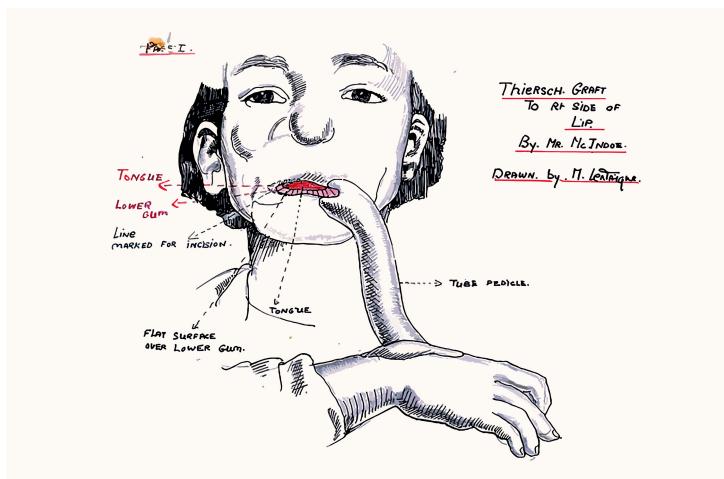 I.
THIERSCH. GRAFT
TO Rt SIDE OF
LIP.
By. MR. McINDOE.
DRAWN. by. M. Lentaigne.
TONGUE
LOWER
GUM
LINE
MARKED FOR INCISION.
TUBE PEDICLE.
TONGUE
FLAT SURFACE
OVER LOWER GUM.